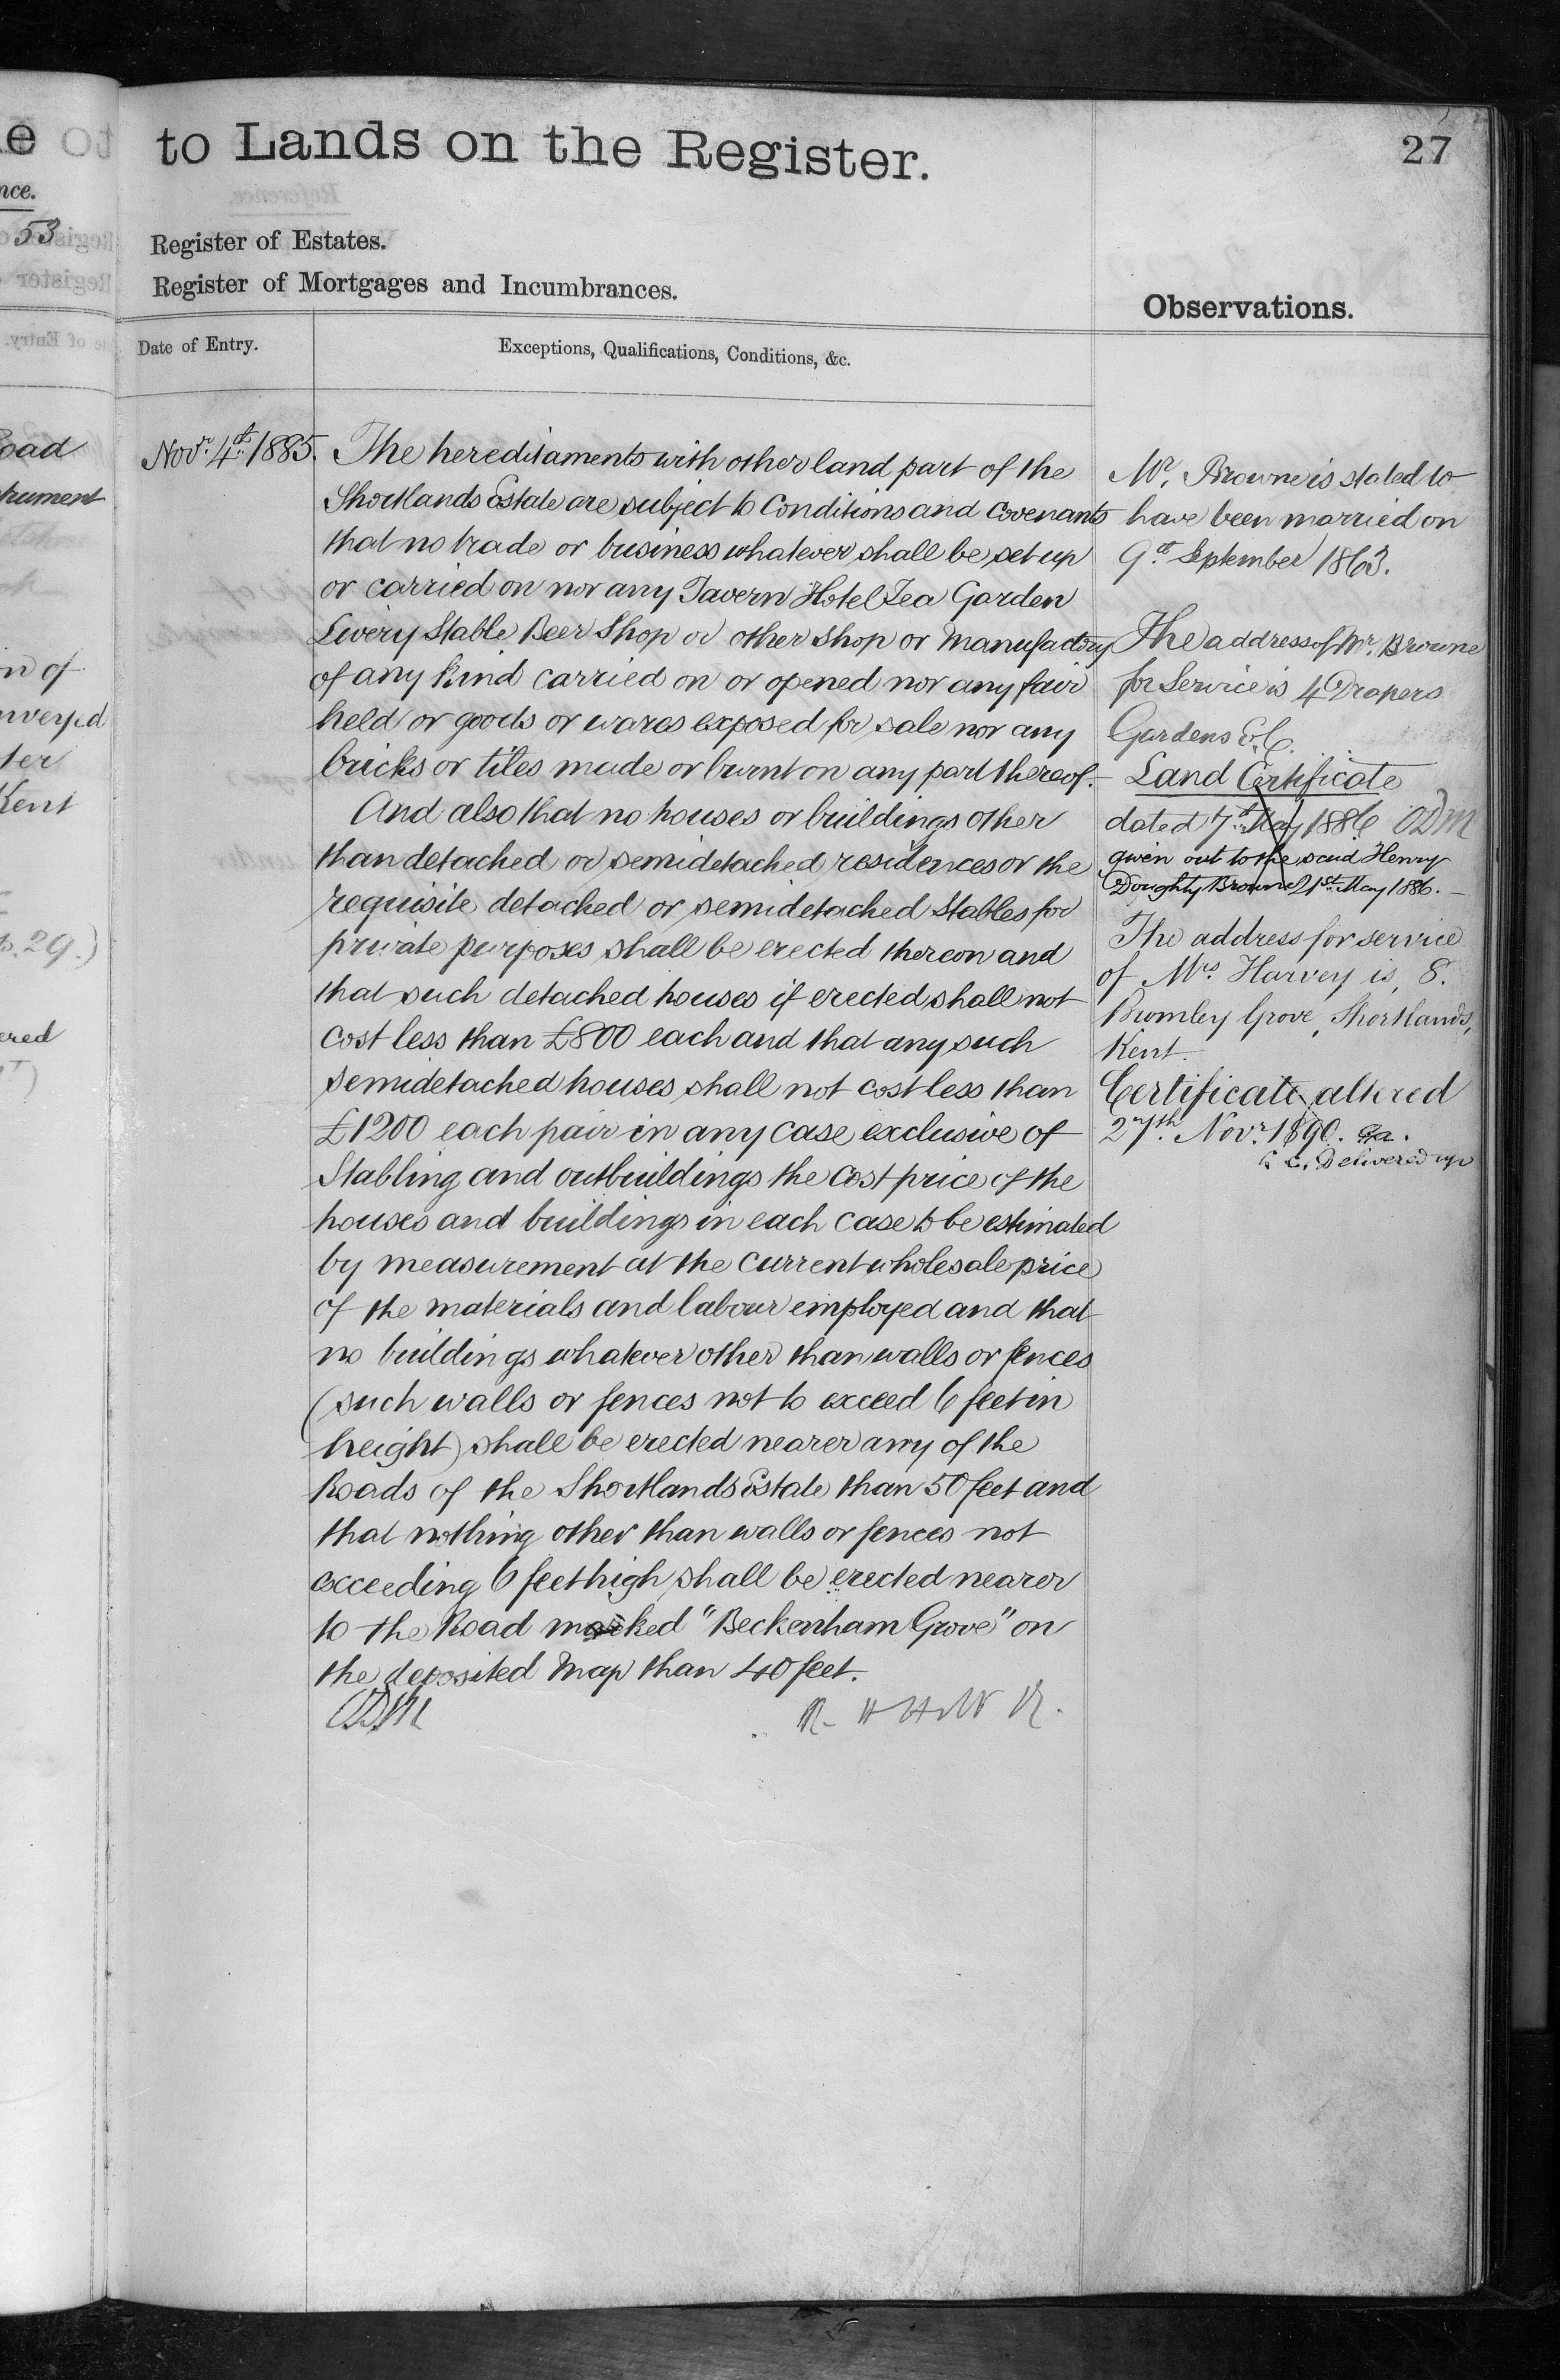 to Lands on the Register.
27
Register of Estates.
Register of Mortgages and Incumbrances.
Observations.
Date of Entry.
Exceptions, Qualifications, Conditions, &c.
Novr. 4th 1885.
The hereditaments with other land part of the
Shortlands Estate are subject to Conditions and Covenants
that no trade or business whatever shall be set up
or carried on nor any Tavern Hotel Tea Garden
Livery Stable Beer Shop or other Shop or Manufactory
of any kind carried on or opened nor any fair
held or goods or wares exposed for sale nor any
bricks or tiles made or burnt on any part thereof.
And also that no houses or buildings other
than detached or semidetached residences or the
requisite detached or semidetached Stables for
private purposes shall be erected thereon and
that such detached houses if erected shall not
cost less than £800 each and that any such
semidetached houses shall not cost less than
£1200 each pair in any case exclusive of
Stabling and outbuildings the cost price of the
houses and buildings in each case to be estimated
by measurement at the current wholesale price
of the materials and labour employed and that
no buildings whatever other than walls or fences
(such walls or fences not to exceed 6 feet in
height) shall be erected nearer any of the
Roads of the Shortlands Estate than 50 feet and
that nothing other than walls or fences not
exceeding 6 feet high shall be erected nearer
to the Road marked "Beckenham Grove" on
the deposited Map than 40 feet.
Mr. Browne is stated to
have been married on
9th September 1863.
The address of Mr. Browne
for Service is 4 Drapers
Gardens E.C.
Land Certificate
dated 7th May 1886 ODM
given out to the said Henry
Doughty Browne 21st May 1886.
The address for service
of Mrs Harvey is, 8.
Bromley Grove, Shortlands,
Kent.
Certificate altered
27th Novr. 1890.
Delivered up
53
nce.